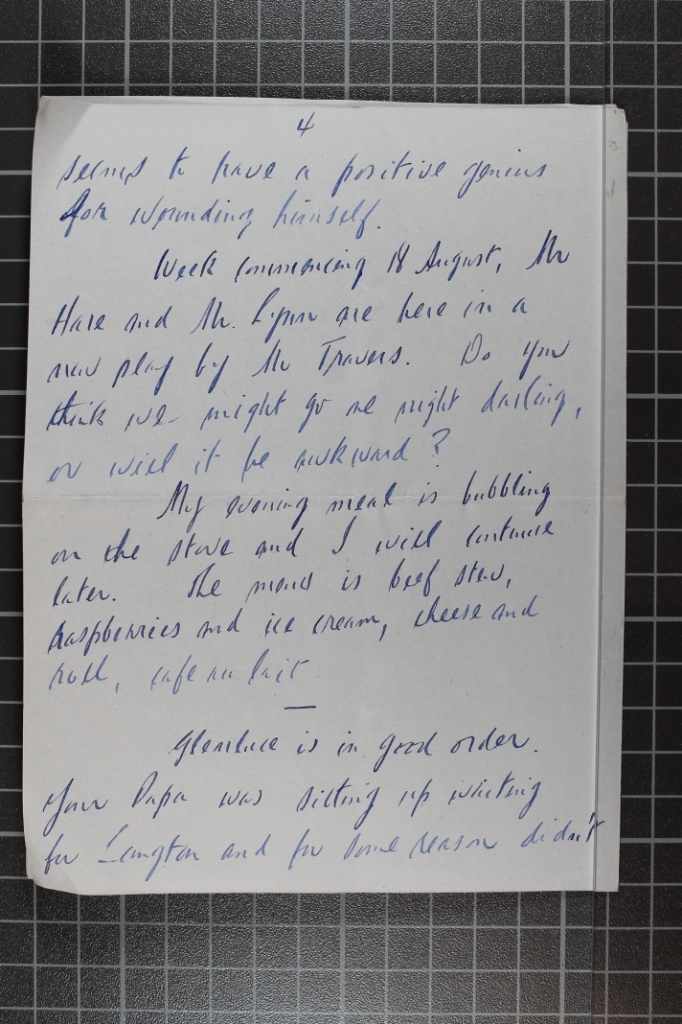 4
seems to have a positive genius
for wounding himself.
Week commencing 18 August, Mr
Hare and Mr. Lynn are here in a
new play by Mr Travers. Do you
think we might go one night darling,
or will it be awkward?
My evening meal is bubbling
on the stove and I will continue
later. The menu is beef stew,
raspberries and ice cream, cheese and
roll, cafe au lait
—
Glenluce is in good order.
Your Papa was sitting up waiting
for Langton and for some reason didn't